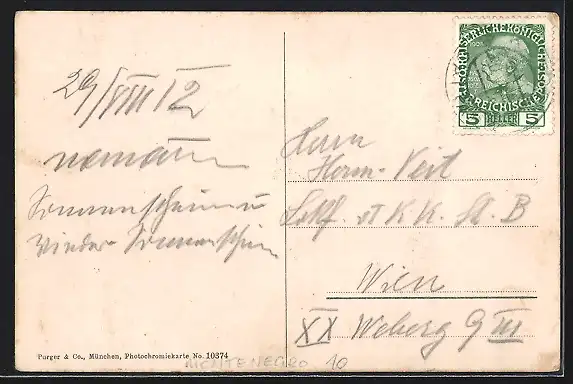 29/VIII 12
Sonnenschein u
wieder Sonnenschein
KAISERLICHE KÖNIGLICHE
ÖSTERREICHISCHE POST
5 HELLER 5
Herrn
Herm. Veit
K. K. St. B
Wien
XX Weberg 9 III
Purger & Co., München, Photochromiekarte No. 10374
MONTENEGRO 10